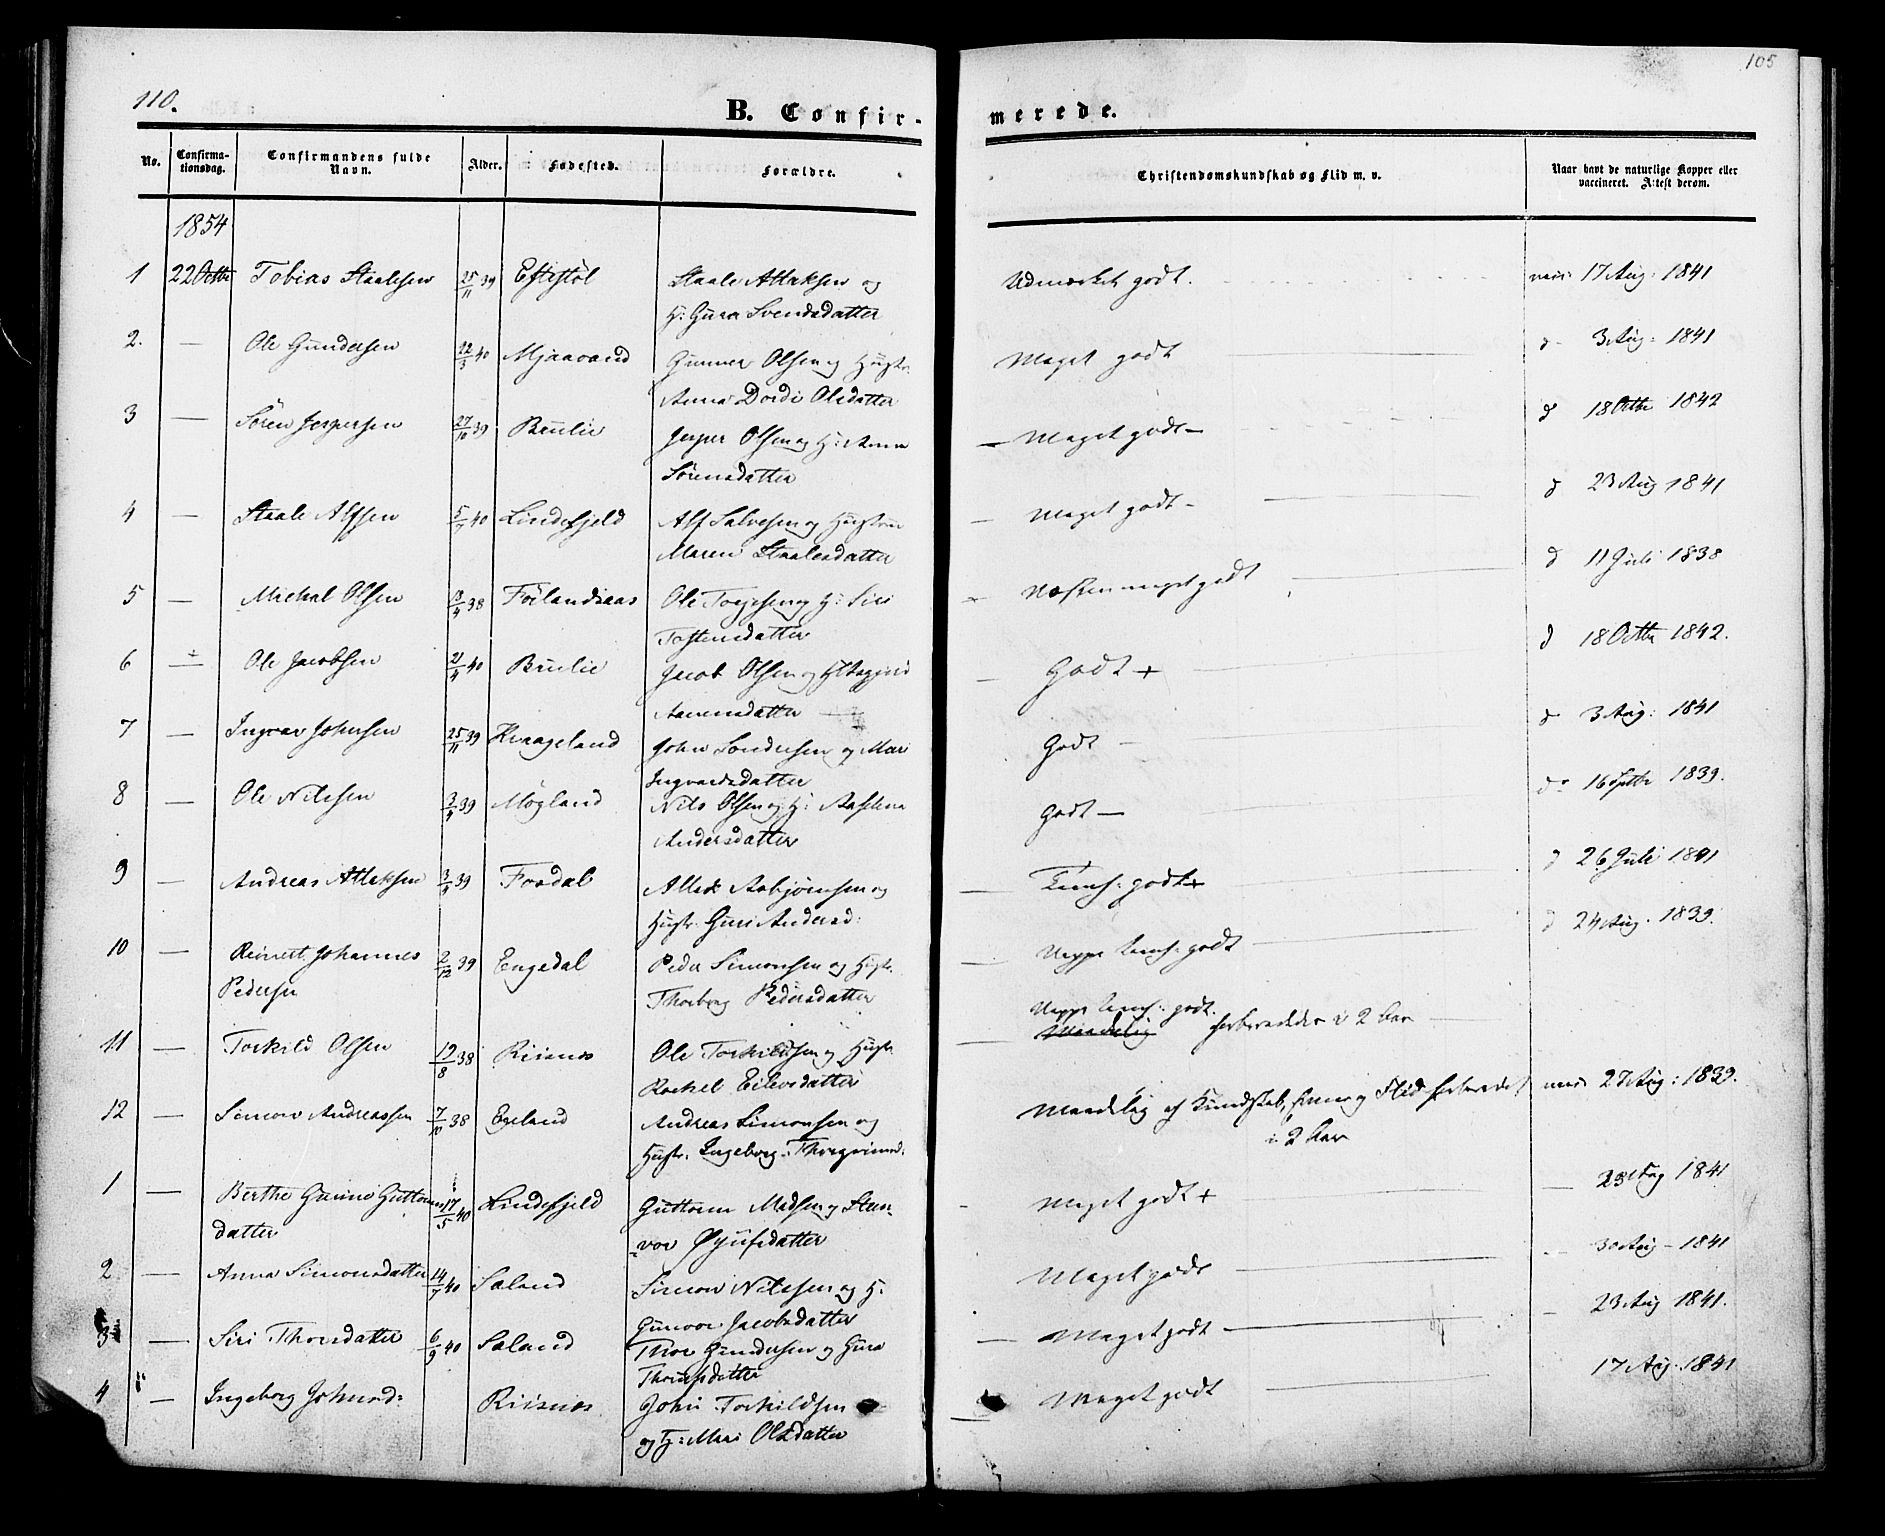 110.
105
B. Confir-
merede.
No.
Confirma-
tionsdag.
Confirmandens fulde
Navn.
Alder.
Fødested.
Forældre.
Christendomskundskab og Flid m. v.
Naar havt de naturlige Kopper eller
vaccineret. Attest derom.
1854
1 22 Octbr Tobias Staalesen 25/11 39 Eftestöl Staale Atlaksen og
H: Gura Svendsdatter
Udmærket godt. vacc: 17 Aug: 1841
2. — Ole Gundersen 22/3 40 Mjaavand Gunner Olsen og Hustr:
Anna Dordi Olsdatter
Meget godt d 3 Aug: 1841
3 — Sören Jespersen 27/10 39 Brulie Jesper Olsen og H: Anna
Sörensdatter
— Meget godt — d 18 Octbr 1842
4 — Staale Alfsen 5/7 40 Lindefjeld Alf Salvesen og Hustru
Maren Staalesdatter
— Meget godt - d 23 Aug 1841
5 — Michal Olsen /4 38 Förlandsaas Ole Torjesen og H: Siri
Tostensdatter
Næsten meget godt d 11 Juli 1838
6 — Ole Jacobsen 21/4 40 Brulie Jacob Olsen og
Aanensdatter
— Godt + d 18 Octbr 1842.
7 — Ingvar Johnsen 25/11 39 Kvaageland John Sondresen og Mari
Ingvardsdatter
Godt — d 3 Aug: 1841
8 — Ole Nilssen /4 39 Mögland Nils Olsen og H: Aaslena
Andersdatter
Godt — do 16 Septbr 1839.
9 — Andreas Atlaksen 3/9 39 Fosdal Atlak Asbjörnsen og
Hustr: Guri Andersd:
— Temh: godt + d 26 Juli 1841
10 — Reinert Johannes 2/12 39 Engedal Peder Simonsen og Hustr:
Pedersen Thorborg Pedersdatter
— Neppe temh: godt d 24 Aug. 1839.
11 — Torkild Olsen 19/8 38 Riisnes Ole Torkildsen og Hustr:
Rachel Eilevsdatter
Neppe temh: godt.
— Maadelig forberedder i 2 Aar
12 — Simon Andreassen 7/10 38 Egeland Andreas Simonsen og
Hustr: Ingeborg Thorgrimsd:
Maadelig af Kundskab, og Flid forberedt vacc 27 Aug: 1839.
i 2 Aar
1 — Berthe Gurine Guttorms 17/5 40 Lindefjeld Guttorm Madsen og Steen-
datter vor datter
Meget godt + — 23 Aug 1841
2 — Anna Simonsdatter 14/7 40 Saland Simon Nilssen og H:
Gunvor Jacobsdatter
Meget godt — 30 Aug - 1841
3 — Siri Thorsdatter 6/9 40 Saland Thor Gundersen og Gura
— Meget godt — — 23 Aug 1841.
4 — Ingeborg Johnsd: Riisnes John Torkildsen
og H: Mari Olsdatter
— Meget godt 17 Aug. 1841